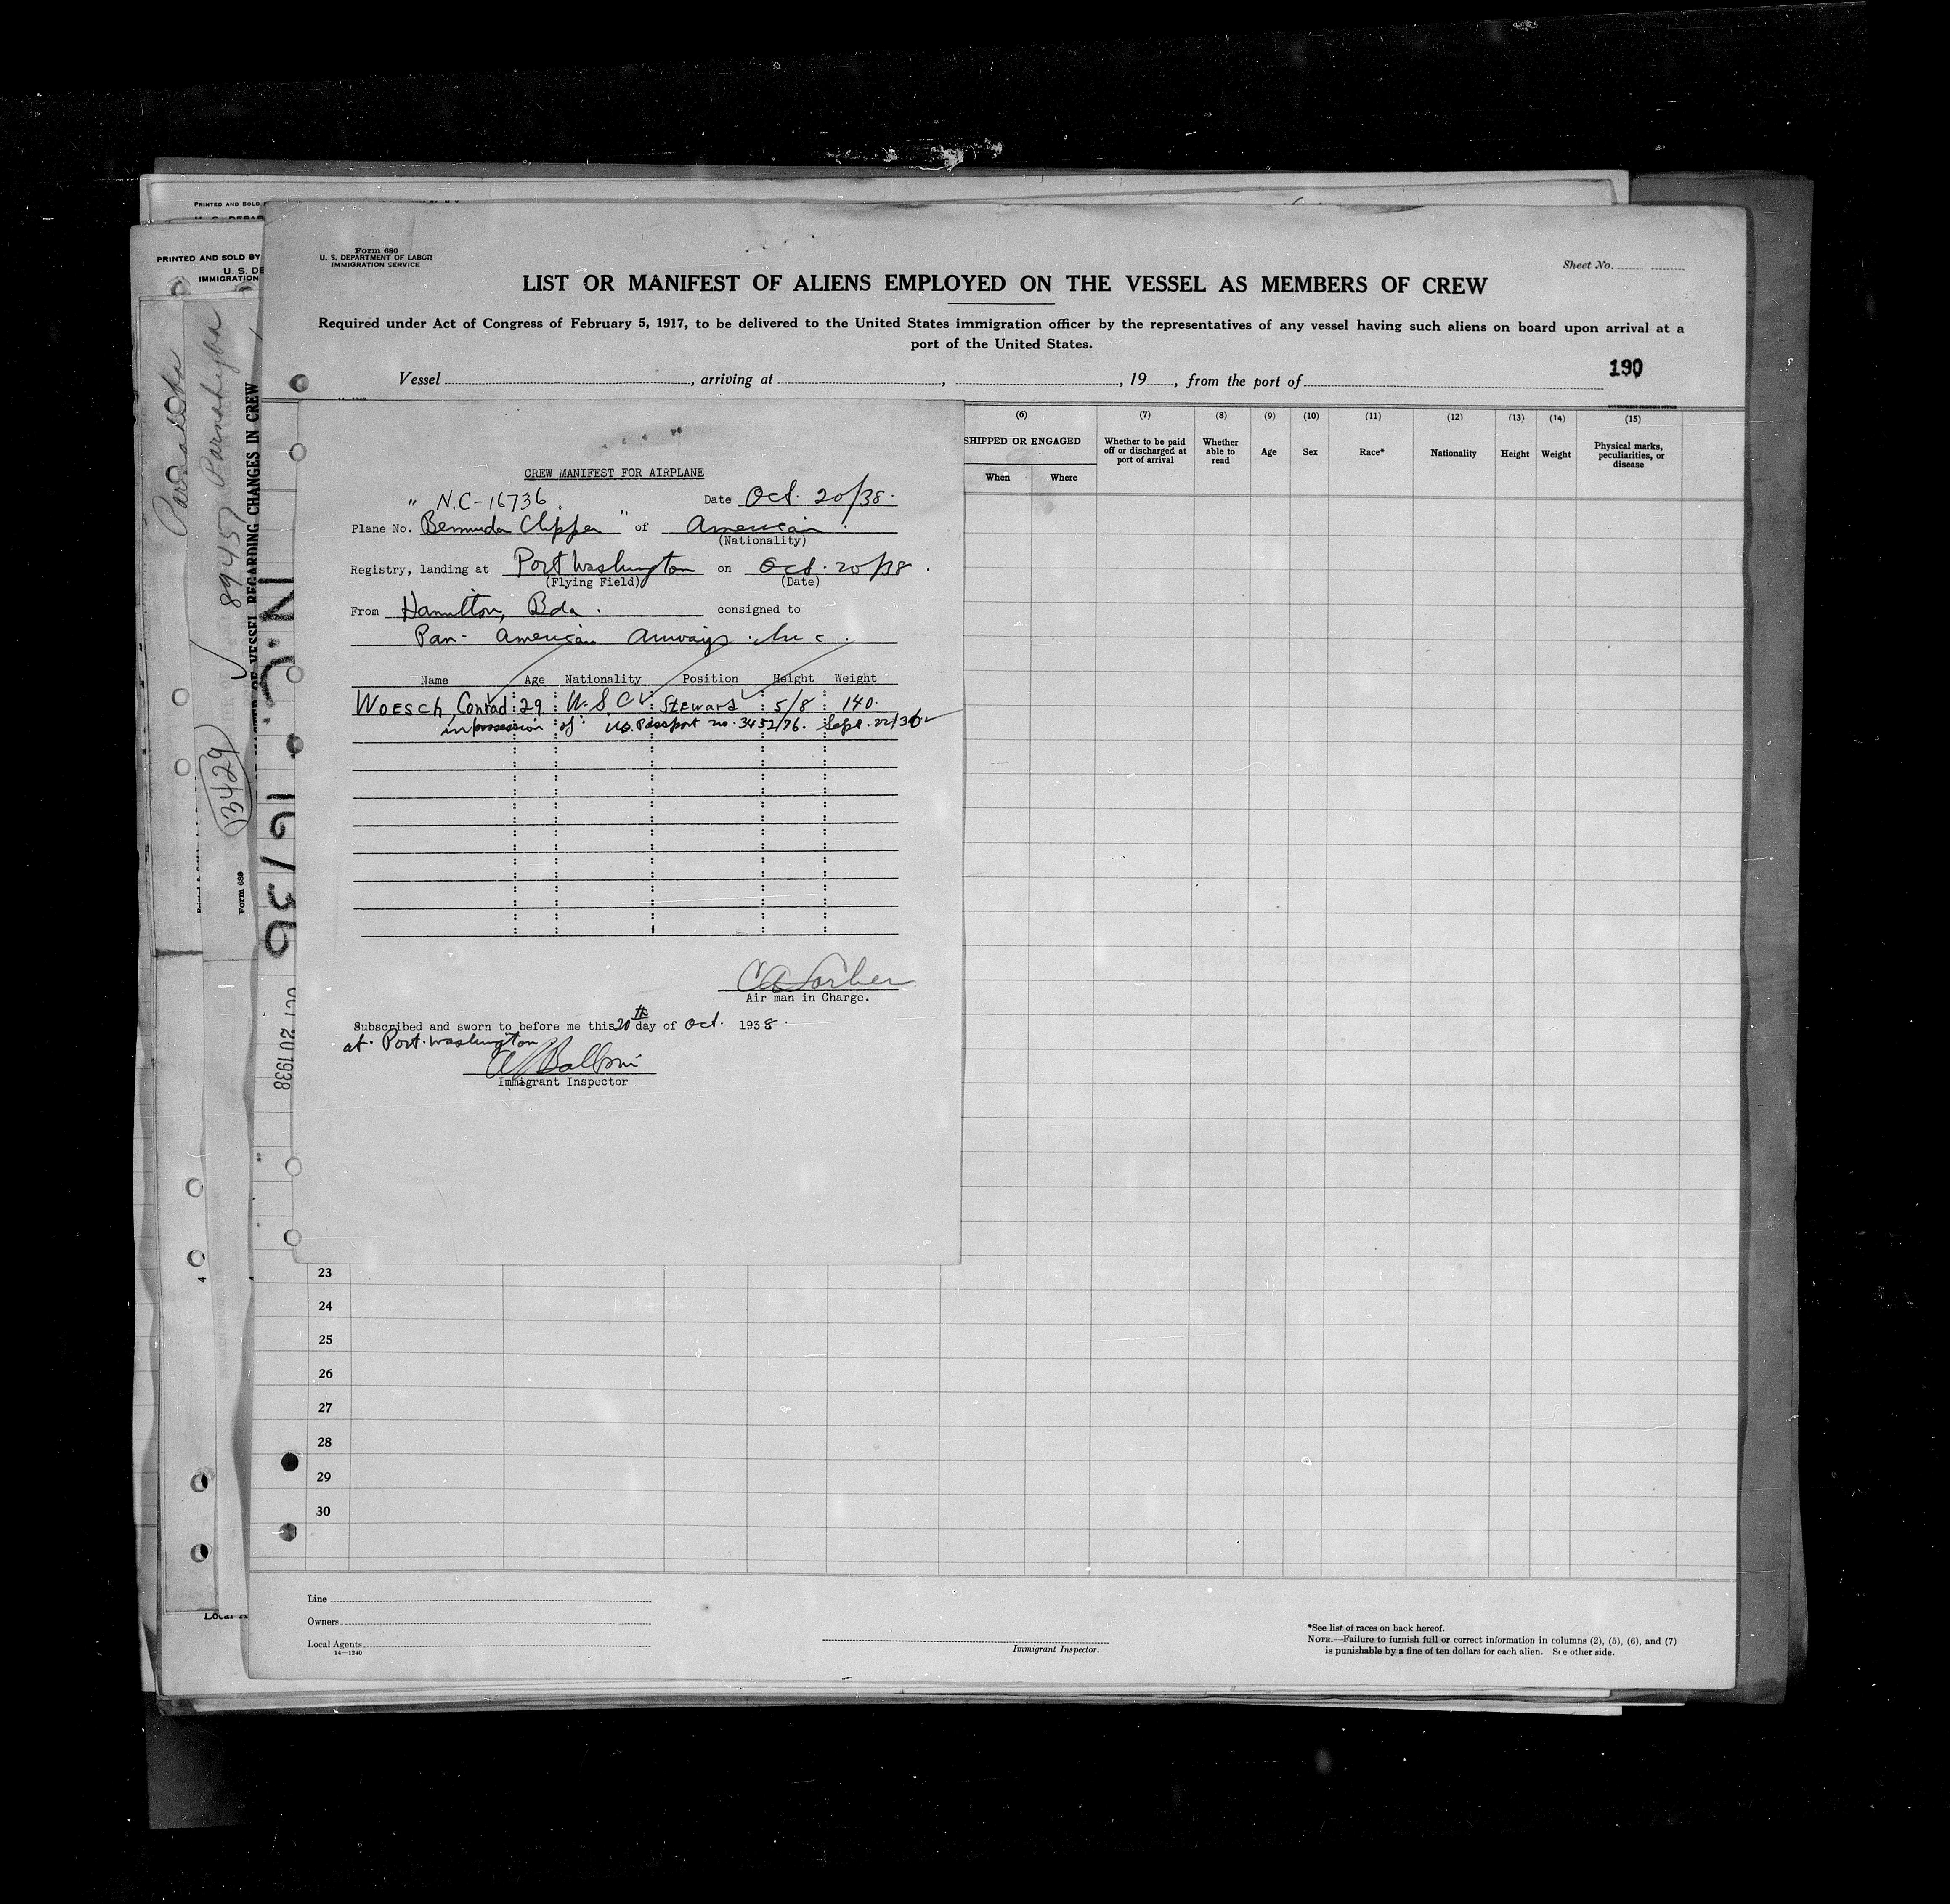 PRINTED AND SOLD
PRINTED AND SOLD BY
U. S. DE
IMMIGRATION
Form 680
U. S. DEPARTMENT OF LABOR
IMMIGRATION SERVICE
Sheet No.
LIST OR MANIFEST OF ALIENS EMPLOYED ON THE VESSEL AS MEMBERS OF CREW
Required under Act of Congress of February 5, 1917, to be delivered to the United States immigration officer by the representatives of any vessel having such aliens on board upon arrival at a
port of the United States.
190
Vessel , arriving at , , 19 , from the port of
(6) (7) (8) (9) (10) (11) (12) (13) (14) (15)
SHIPPED OR ENGAGED
When Where
Whether to be paid
off or discharged at
port of arrival
Whether
able to
read
Age Sex Race* Nationality Height Weight
Physical marks,
peculiarities, or
disease
CREW MANIFEST FOR AIRPLANE
" N.C-16736 Date Oct. 20/38.
Plane No. Bermuda Clipper " of American
(Nationality)
Registry, landing at Port Washington on Oct. 20/38.
(Flying Field) (Date)
From Hamilton, Bda. consigned to
Pan-American Airways Inc.
Name Age Nationality Position Height Weight
Woesch, Conrad 29 U.S.C. Steward 5/8 140.
in possession of U.S. Passport no. 345276. Sept. 22/36
Air man in Charge.
Subscribed and sworn to before me this 20th day of Oct. 1938.
at Port Washington
Immigrant Inspector
23
24
25
26
27
28
29
30
Line
Owners
Local Agents
14—1240
Immigrant Inspector.
*See list of races on back hereof.
NOTE.—Failure to furnish full or correct information in columns (2), (5), (6), and (7)
is punishable by a fine of ten dollars for each alien. See other side.
Parnahyba
89457
VESSEL REGARDING CHANGES IN CREW
13429
Form 689
N.C. 16736
OCT 20 1938
4
Local A